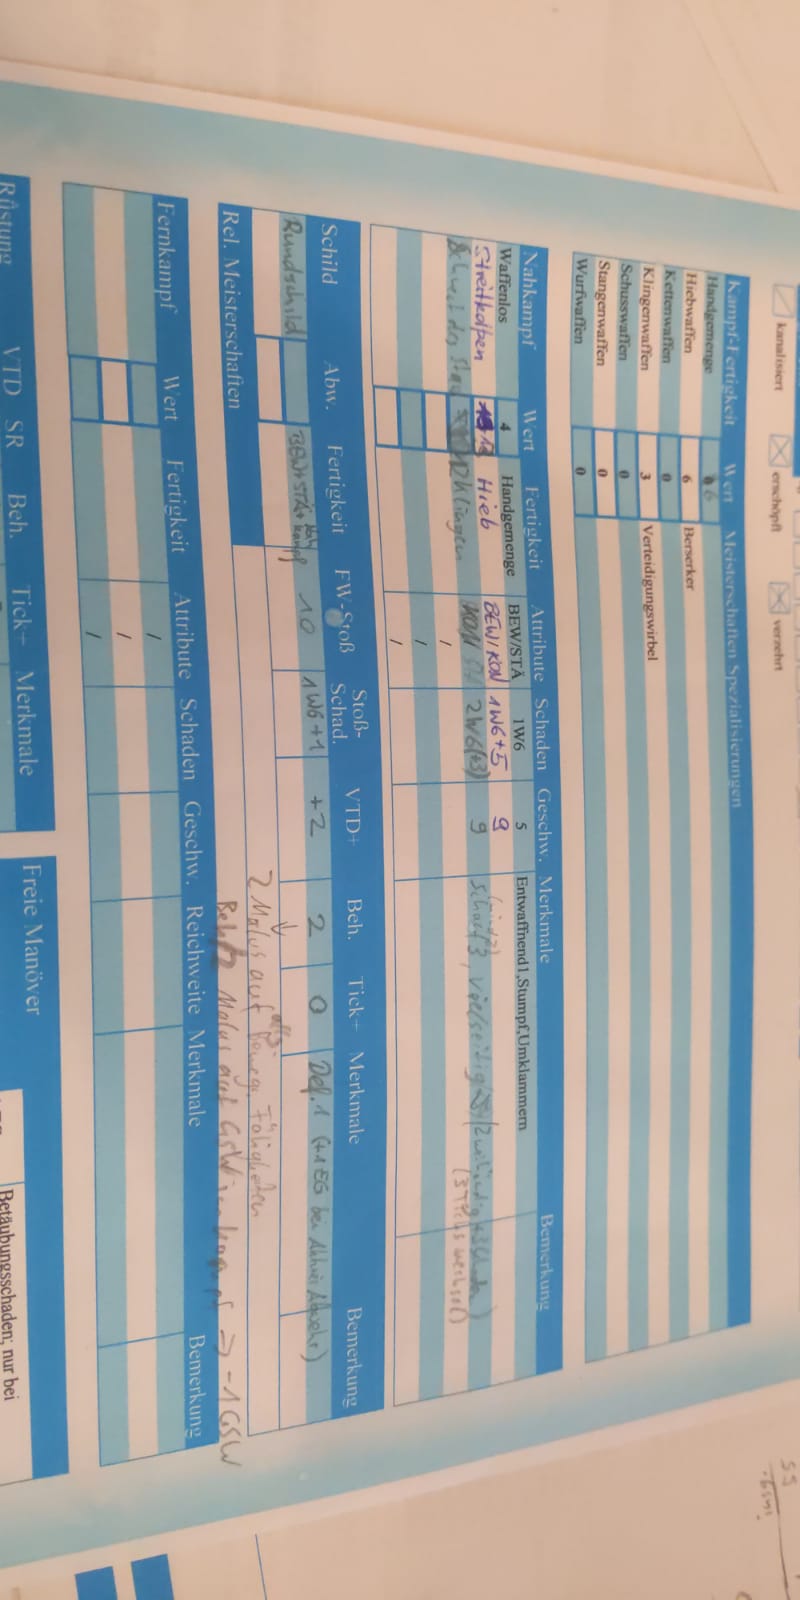 kanalisiert erschöpft verzehrt
55
Kampf-Fertigkeit Wert Meisterschaften Spezialisierungen
Handgemenge 6
Hiebwaffen 6 Berserker
Kettenwaffen 0
Klingenwaffen 3 Verteidigungswirbel
Schusswaffen 0
Stangenwaffen 0
Wurfwaffen 0
Nahkampf Wert Fertigkeit Attribute Schaden Geschw. Merkmale Bemerkung
Waffenlos 4 Handgemenge BEW/STÄ 1W6 5 Entwaffnend1,Stumpf,Umklammern
Streitkolben Hieb BEW/KON 1W6+5 9
Schwert des 12 Klingen 2W6(+3) 9 Scharf 3, Vielseitig
(3 Ticks wechsel)
/
/
/
Schild Abw. Fertigkeit FW-Stoß Stoß-Schad. VTD+ Beh. Tick+ Merkmale Bemerkung
Rundschild BEW+STÄ+ kampf 10 1W6+1 +2 2 0 Def. 1 (+1EG bei Aktiver Abwehr)
2 Malus auf allg. Beweg. Fähigkeiten
Rel. Meisterschaften
Beh/2 Malus auf GSW im kampf => -1 GSW
Fernkampf Wert Fertigkeit Attribute Schaden Geschw. Reichweite Merkmale Bemerkung
/
/
/
Rüstung VTD SR Beh. Tick+ Merkmale
Freie Manöver
Betäubungsschaden; nur bei